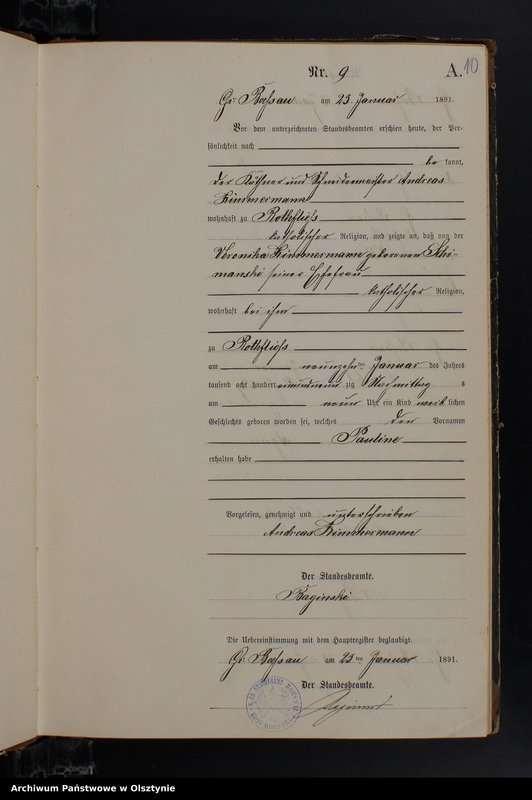 10
Nr. 9
A.
Gr. Bößau am 23. Januar 1891.
Vor dem unterzeichneten Standesbeamten erschien heute, der Per-
sönlichkeit nach
be kannt,
der Käthner und Schneidermeister Andreas
Zimmermann
wohnhaft zu Rothfließ
katholischer Religion, und zeigte an, daß von der
Veronika Zimmermann geborenen Schi-
manski seiner Ehefrau
katholischer Religion,
wohnhaft bei ihm
zu Rothfließ
am neunzehn ten Januar des Jahres
tausend acht hundert einundneun zig Nachmittag s
um neun Uhr ein Kind weib lichen
Geschlechts geboren worden sei, welches den Vornamen
Pauline
erhalten habe
Vorgelesen, genehmigt und unterschrieben
Andreas Zimmermann
Der Standesbeamte.
Baginski
Die Uebereinstimmung mit dem Hauptregister beglaubigt.
Gr. Bößau am 23 ten Januar 1891.
Der Standesbeamte.
Archiwum Państwowe w Olsztynie